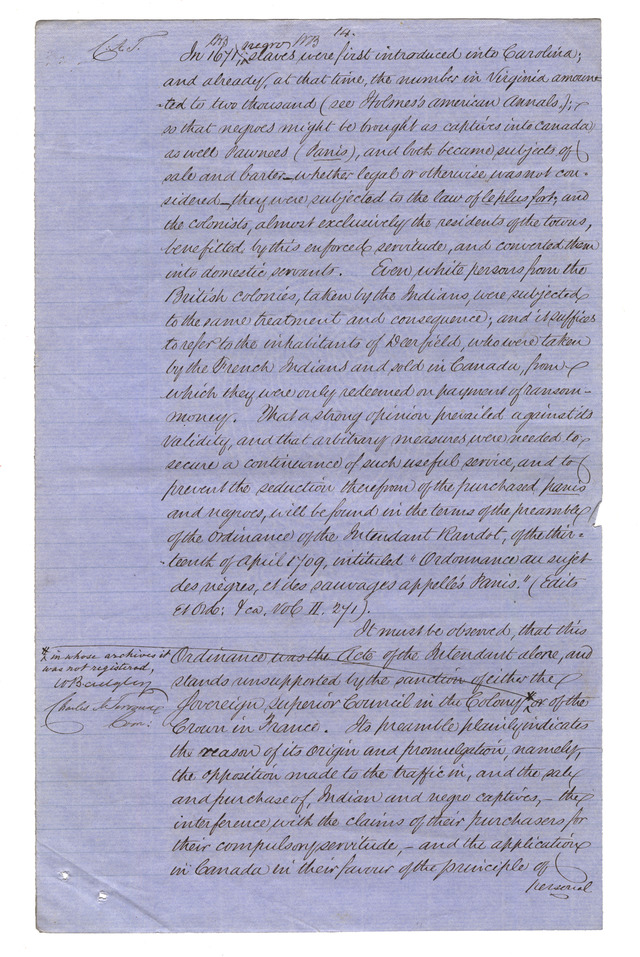 14.
C.A.T.
WB negro WB
In 1671, ^ slaves were first introduced into Carolina;
and already, at that time, the number in Virginia amoun-
-ted to two thousand (see Holmes's american Annals.);
so that negroes might be brought as captives into Canada
as well Pawnees (Panis), and both became subjects of
sale and barter – whether legal or otherwise was not con-
sidered – they were subjected to the law of le plus fort; and
the colonists, almost exclusively the residents of the towns,
benefitted by this enforced servitude, and converted them
into domestic servants. Even, white persons from the
British colonies, taken by the Indians, were subjected
to the same treatment and consequence; and it suffices
to refer to the inhabitants of Deerfield, who were taken
by the French Indians and sold in Canada, from
which they were only redeemed on payment of ransom-
money. That a strong opinion prevailed against its
validity, and that arbitrary measures were needed to
secure a continuance of such useful service, and to
prevent the seduction therefrom of the purchased panis
and negroes, will be found in the terms of the preamble
of the ordinance of the Intendant Raudot, of the thir-
-teenth of April 1709, intituled "Ordonnance au sujet
des nègres, et des sauvages appellés Panis." (Edits
et Ord: Vol II. 271).
It must be observed, that this
Ordinance was the Act of the Intendant alone, and
stands unsupported by the sanction of either the
Sovereign, superior Council in the Colony * or of the
Crown in France. Its preamble plainly indicates
the reason of its origin and promulgation, namely,
the opposition made to the traffic in, and the sale
and purchase of, Indian and negro captives, – the
interference with the claims of their purchasers for
their compulsory servitude, – and the application
in Canada in their favour of the principle of
personal
* in whose archives it
was not registered,
W Badgley
Charles
Com: